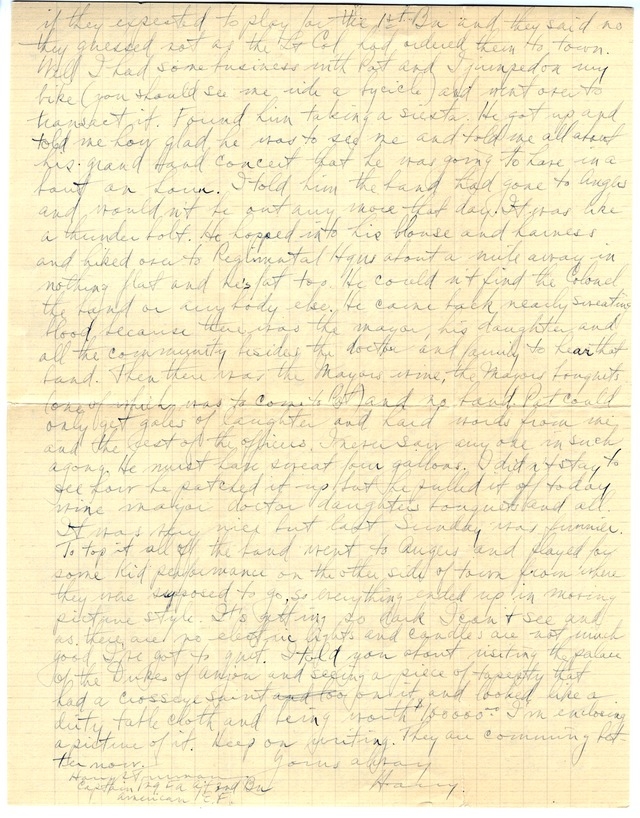 if they expected to play for the 1st Bn and they said no
they guessed not as the Lt Col had ordered them to town.
Well I had some business with Pat and I jumped on my
bike (you should see me ride a bycicle) and went over to
transact it. Found him taking a siesta. He got up and
told me how glad he was to see me and told me all about
his grand band concert that he was going to have in a
bout an hour. I told him the band had gone to Angers
and wouldn't be out any more that day. It was like
a thunder bolt. He hopped into his blouse and harness
and hiked over to Regimental Hqrs about a mile away in
nothing flat and his at top. He couldn't find the Colonel
the band or any body else. He came back nearly sweating
blood because there was the mayor, his daughter and
all the community besides the doctor and family to hear that
band. Then there was the Mayors wine, the Mayors bouquets
(one of which was to come to Pat) and no band. Pat could
only get gales of laughter and hard words from me
and the rest of the officers. I never saw any one in such
agony. He must have sweat four gallons. I didn't stay to
see how he patched it up but he pulled it off today
wine mayor doctor daughter bouquets and all.
It was very nice but last Sunday was funnier.
To top it all off the band went to Angers and played for
some kid performance on the other side of town from where
they was supposed to go, so everything ended up in moving
picture style. It's getting so dark I can't see and
as there are no electric lights and candles are not much
good I've got to quit. I told you about visiting the palace
of the Dukes of Anjou and seeing a piece of tapestry that
had a crosseye saint on it, and looked like a
dirty table cloth and being worth $100000.00 I'm enclosing
a picture of it. Keep on writing. They are comming bet
ter now. Yours always
Harry.
Harry S Truman
Captain
American E.F.